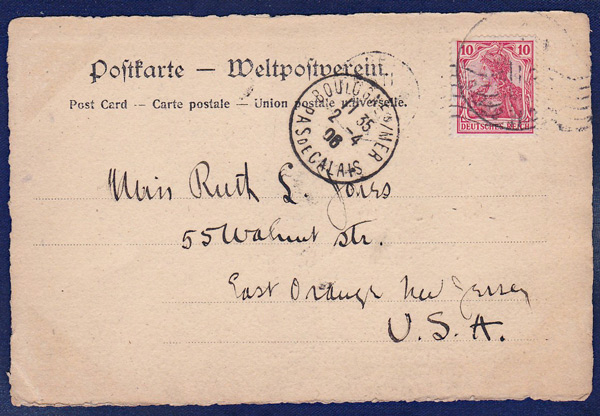 10 10
DEUTSCHES REICH
Postkarte — Weltpostverein.
Post Card — Carte postale — Union postale universelle.
BOULOGNE S/MER
2 35
2 - 4
06
PAS DE CALAIS
Miss Ruth L. Jones
55 Walnut str.
East Orange New Jersey
U. S. A.